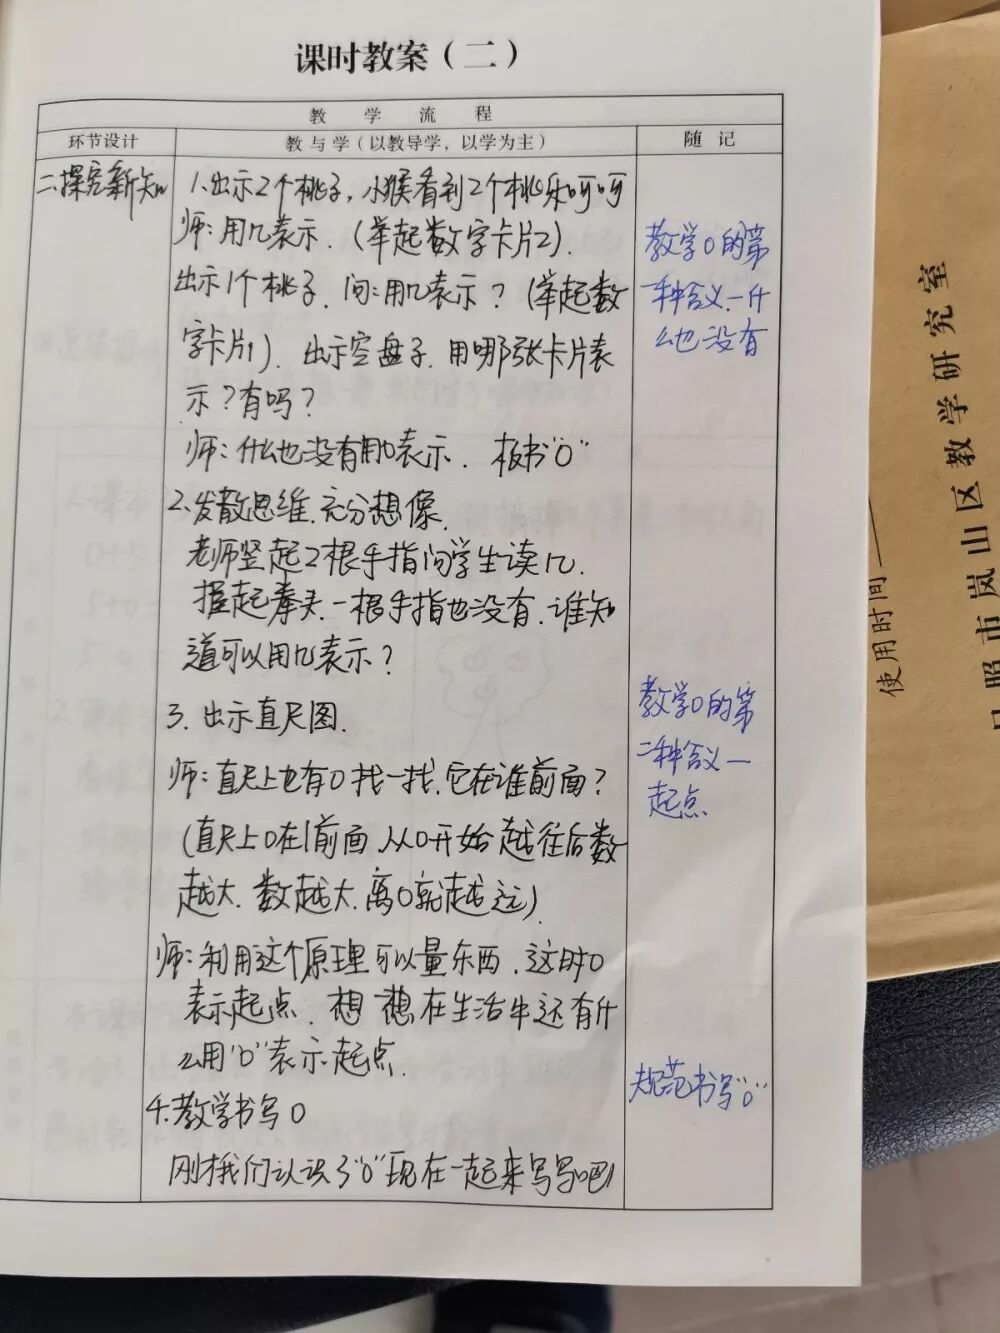 课时教案（二）
教 学 流 程
环节设计
教与学（以教导学，以学为主）
随 记
二.探究新知
1.出示2个桃子，小猴看到2个桃乐呵呵
师：用几表示．（举起数字卡片2）．
出示1个桃子．问：用几表示？（举起数
字卡片1）．出示空盘子．用哪张卡片表
示？有吗？
师：什么也没有用0表示．板书“0”
2.发散思维.充分想像．
老师竖起2根手指问学生读几．
握起拳头一根手指也没有．谁知
道可以用几表示？
3. 出示直尺图．
师：直尺上也有0找一找．它在谁前面？
（直尺上0在1前面．从0开始越往后数
越大．数越大．离0就越远）．
师：利用这个原理可以量东西．这时0
表示起点．想一想在生活中还有什
么用“0”表示起点．
4.教学书写0
刚才我们认识了“0”现在一起来写写吧
教学0的第
一种含义－什
么也没有
教学0的第
二种含义－
起点
规范书写“0”
使用时间
日照市岚山区教学研究室